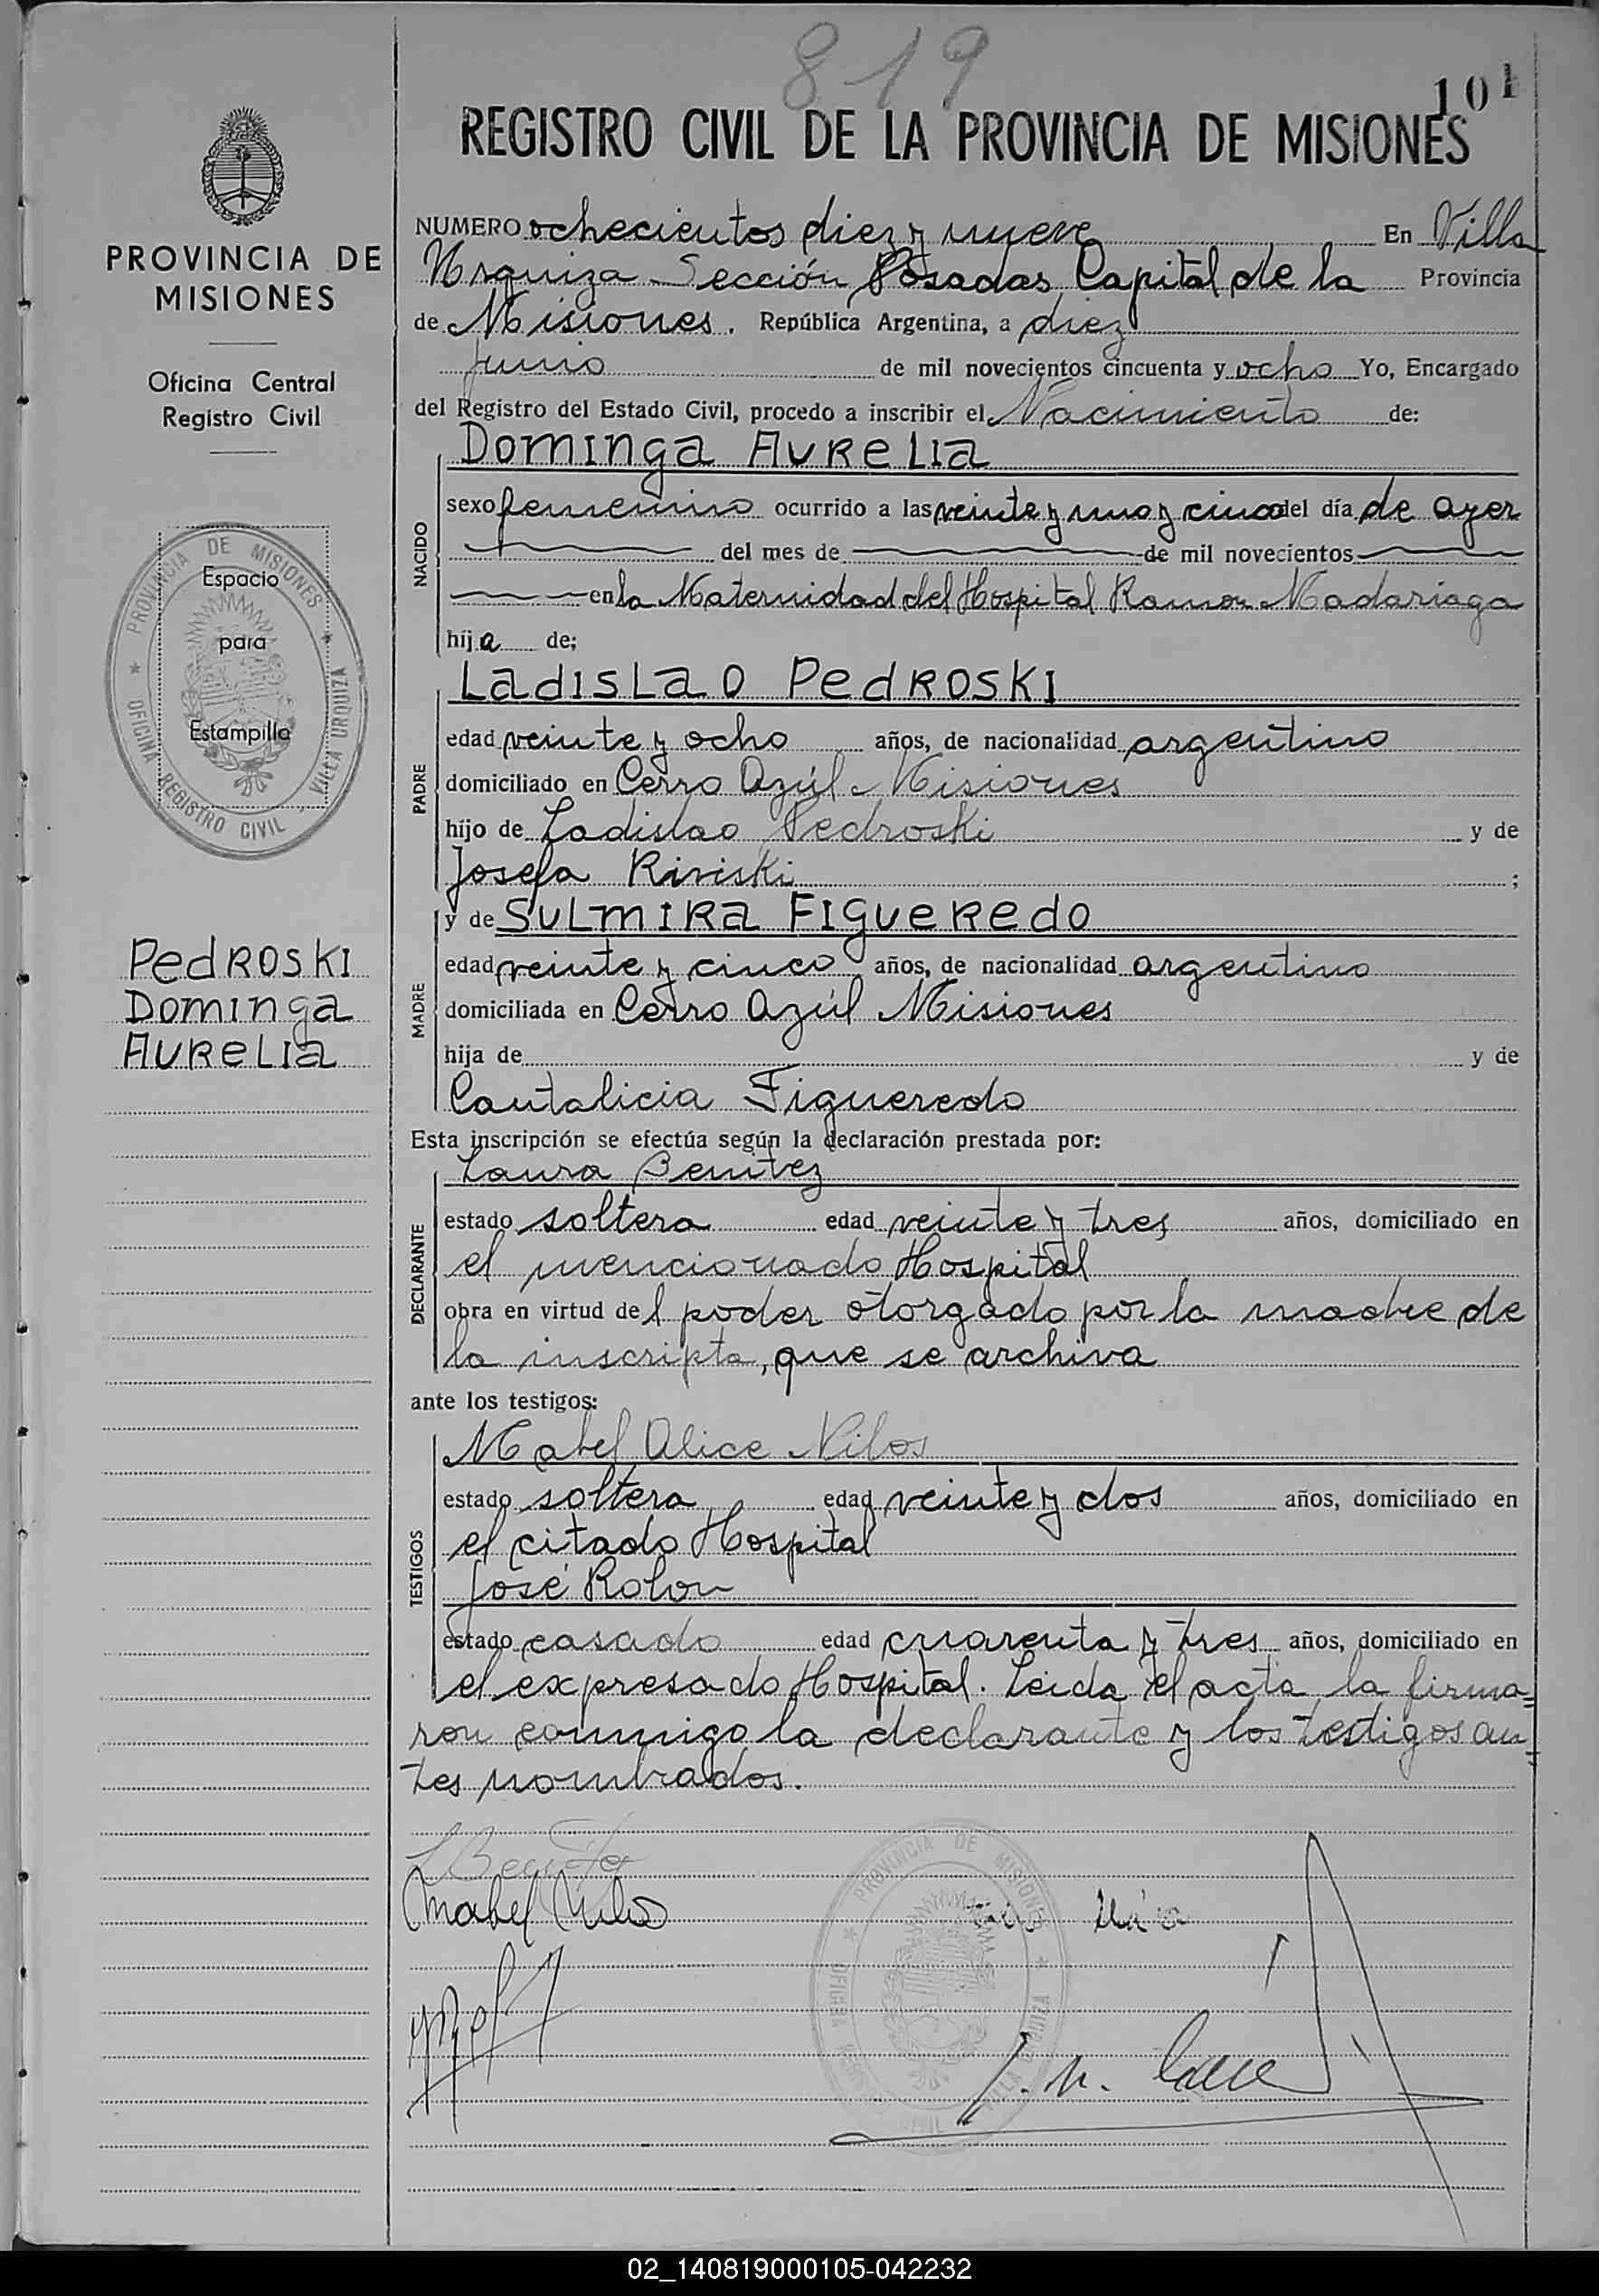 819
101
REGISTRO CIVIL DE LA PROVINCIA DE MISIONES
PROVINCIA DE
MISIONES
Oficina Central
Registro Civil
PROVINCIA DE MISIONES * OFICINA REGISTRO CIVIL - VILLA URQUIZA *
Espacio
para
Estampilla
Pedroski
Dominga
Aurelia
NUMERO ochecientos diez y nueve En Villa
Urquiza Sección Posadas Capital de la Provincia
de Misiones. República Argentina, a diez
junio de mil novecientos cincuenta y ocho Yo, Encargado
del Registro del Estado Civil, procedo a inscribir el Nacimiento de:
NACIDO
Dominga Aurelia
sexo femenino ocurrido a las veinte y uno y cinco del día de ayer
del mes de de mil novecientos
en la Maternidad del Hospital Ramon Madariaga
hija de;
PADRE
Ladislao Pedroski
edad veinte y ocho años, de nacionalidad argentino
domiciliado en Cerro Azúl Misiones
hijo de Ladislao Pedroski y de
Josefa Riviski ;
MADRE
y de Sulmira Figueredo
edad veinte y cinco años, de nacionalidad argentino
domiciliada en Cerro Azúl Misiones
hija de y de
Cantalicia Figueredo
Esta inscripción se efectúa según la declaración prestada por:
DECLARANTE
Laura Benitez
estado soltera edad veinte y tres años, domiciliado en
el mencionado Hospital
obra en virtud del poder otorgado por la madre de
la inscripta, que se archiva
ante los testigos:
TESTIGOS
Mabel Alice Nilos
estado soltera edad veinte y dos años, domiciliado en
el citado Hospital
José Rolon
estado casado edad cuarenta y tres años, domiciliado en
el expresado Hospital. Leida el acta, la firma=
ron conmigo la declarante y los testigos an=
tes nombrados.
L Benitez
Mabel Nilos
PROVINCIA DE MISIONES
02_140819000105-042232